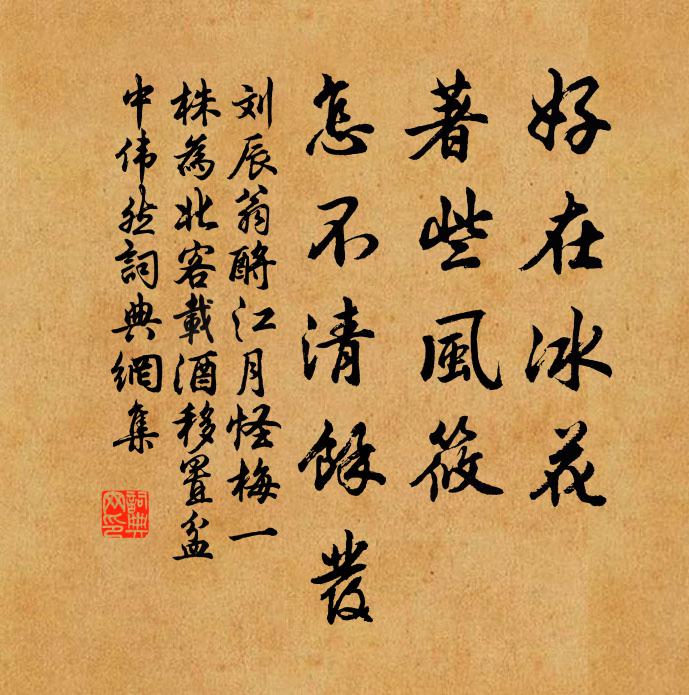 好在冰花
著些風篠
怎不清餘發
刘辰翁酹江月怪梅一
株為北客載酒移置盆
中伟然詞典網集
詞典网印